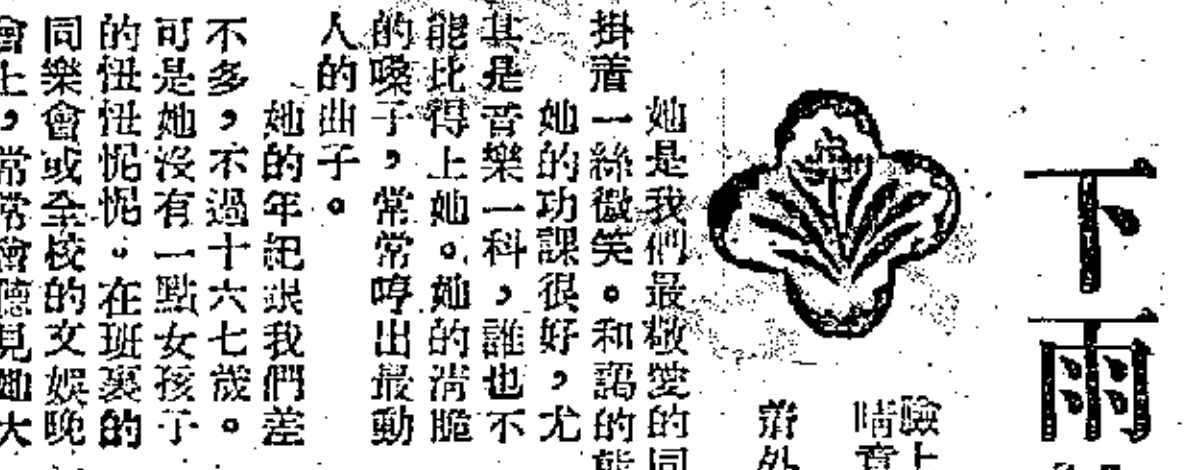 下雨
臉上
晴意
着外
她是我們最敬愛的同
掛着一絲微笑。和藹的態
她的功課很好，尤
其是音樂一科，誰也不
能比得上她。她的淸脆
的嗓子，常常哼出最動
人的曲子。
她的年紀跟我們差
不多，不過十六七歲。
可是她沒有一點女孩子
的忸忸怩怩。在班裏的
同樂會或全校的文娛晚
會上，常常會聽見她大